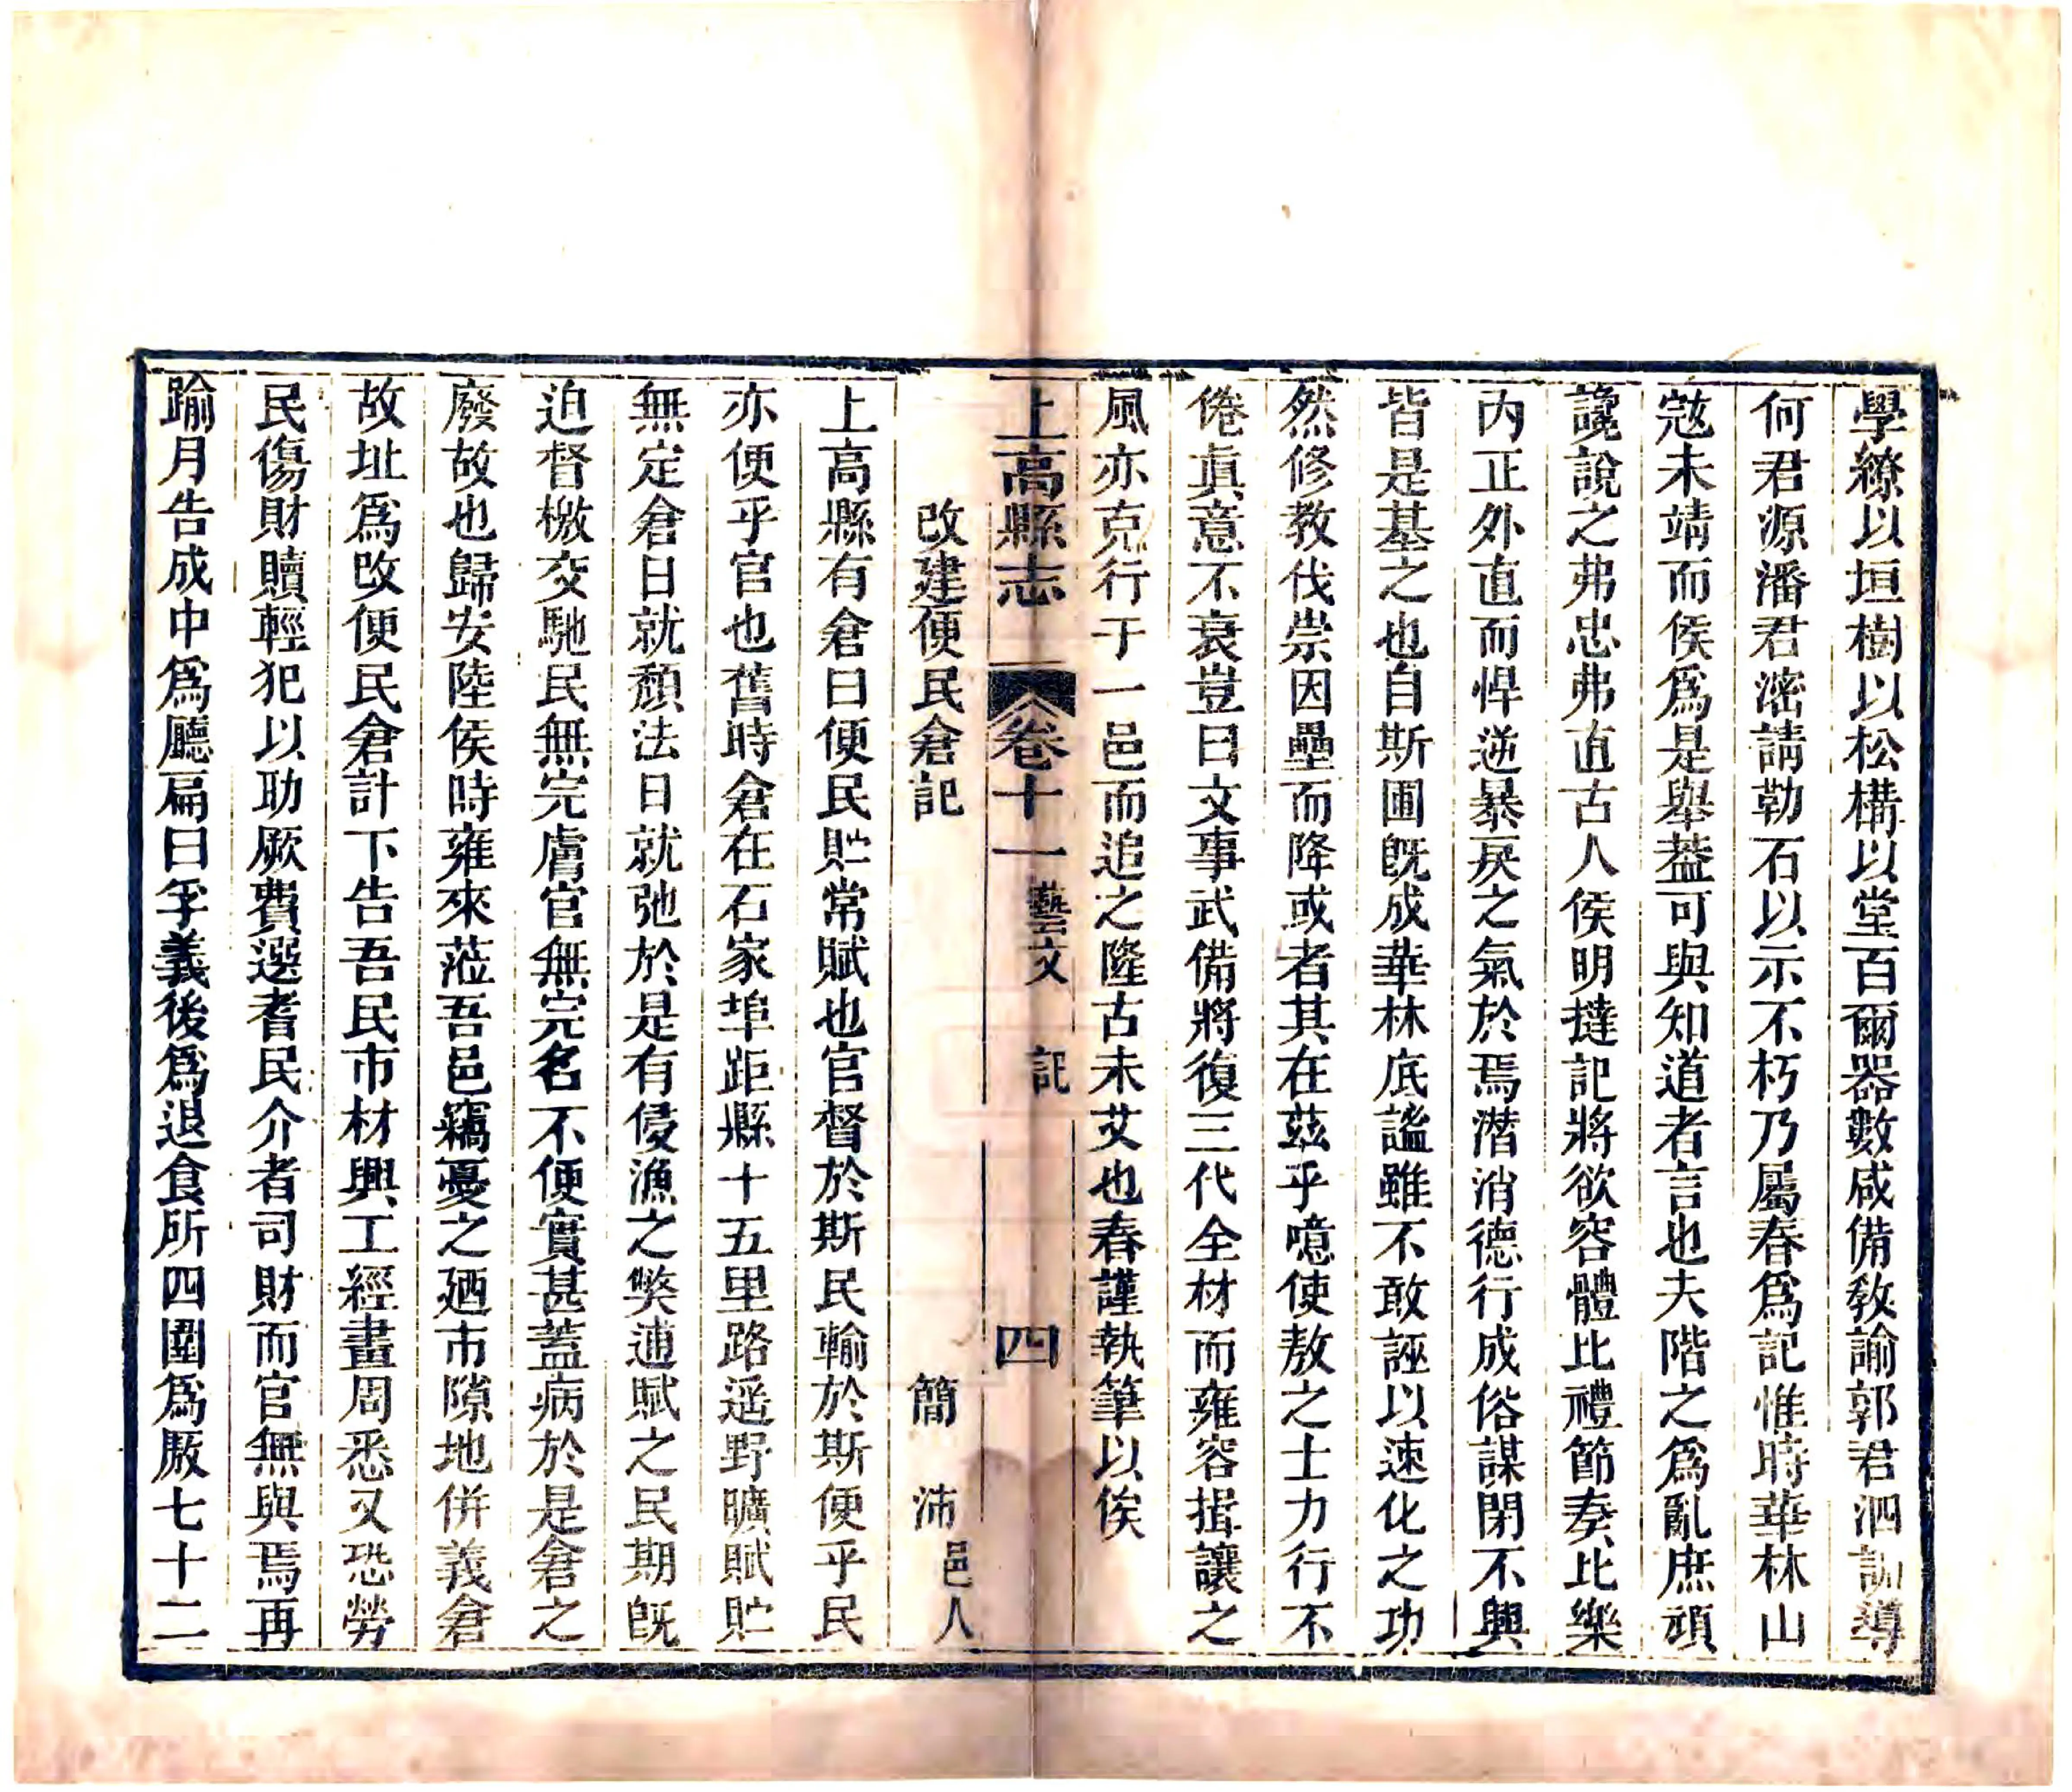 學繚以垣樹以松構以堂百爾器數咸備敎諭郭君泗訓導
何君源潘君滵請勒石以示不朽乃屬春爲記惟時華林山
宼未靖而侯爲是舉葢可與知道者言也夫階之爲亂庶頑
讒說之弗忠弗直古人侯明撻記將欲容體比禮節奏比樂
內正外直而悍逆暴戾之氣於焉潛消德行成俗謀閉不興
皆是基之也自斯圃旣成華林底謐雖不敢誣以速化之功
然修敎伐崇因壘而降或者其在茲乎噫使敖之士力行不
倦眞意不衰豈曰文事武備將復三代全材而雍容揖讓之
風亦克行于一邑而追之隆古未艾也春謹執筆以俟
上高縣志 卷十一 藝文 記 四
改建便民倉記 簡 沛 邑人
上高縣有倉曰便民貯常賦也官督於斯民輸於斯便乎民
亦便乎官也舊時倉在石家埠距縣十五里路遥野曠賦貯
無定倉日就頹法日就弛於是有侵漁之獘逋賦之民期旣
迫督檄交馳民無完膚官無完名不便實甚蓋病於是倉之
廢故也歸安陸侯時雍來蒞吾邑竊憂之廼市隙地併義倉
故址爲改便民倉計下告吾民市材興工經畫周悉又恐勞
民傷財贖輕犯以助厥費選耆民介者司財而官無與焉再
踰月告成中爲廳扁曰孚義後爲退食所四圍爲厫七十二